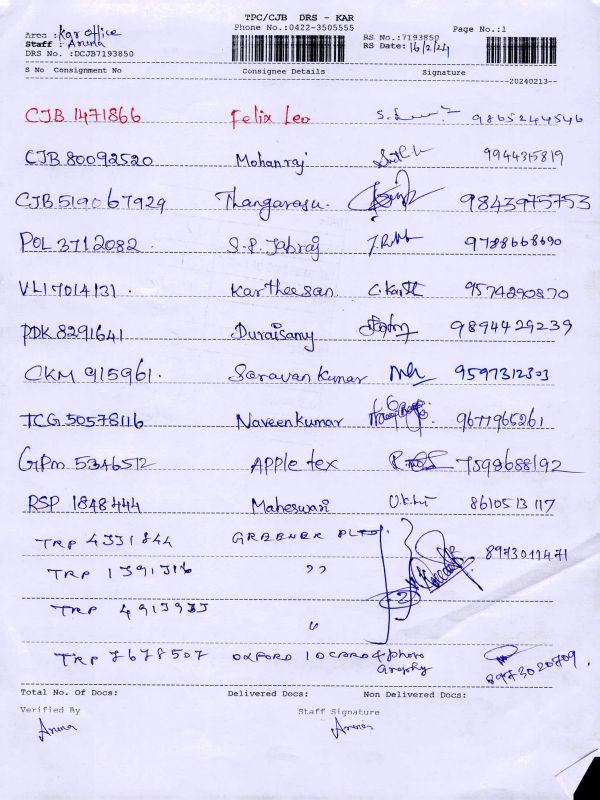 TPC/CJB DRS - KAR
Phone No.:0422-3505555
Page No.:1
Area : Kar office
RS No.:7193850
Staff : Aruna
RS Date: 16/2/24
DRS No. :DCJB7193850
S No Consignment No Consignee Details Signature
20240213
CJB 1471866 Felix Leo 9865244546
CJB 80092520 Mohanraj 9944315819
CJB 519067929 Thangarasu. 9843975753
POL 3712082 . S.P. Jabraj 9788668690
VLI7014131 . Kartheesan C.Karth 9574290870
PDK 8291641 Duraisamy 9894429239
CKM 915961. Saravan kumar 9597312303
TCG 50578116 Naveenkumar 9677965261
GPM 5346512 APPle tex 7598688192
RSP 1848444 Maheswari 8610513117
TRP 4331844 GREENER PLTD. 8973011471
TRP 1391316 ,,
TRP 4913933 ,,
TRP 7678507 OXFORD ID CARD & photo graphy 8973020709.
Total No. Of Docs: Delivered Docs: Non Delivered Docs:
Verified By Staff Signature
Aruna Aruna